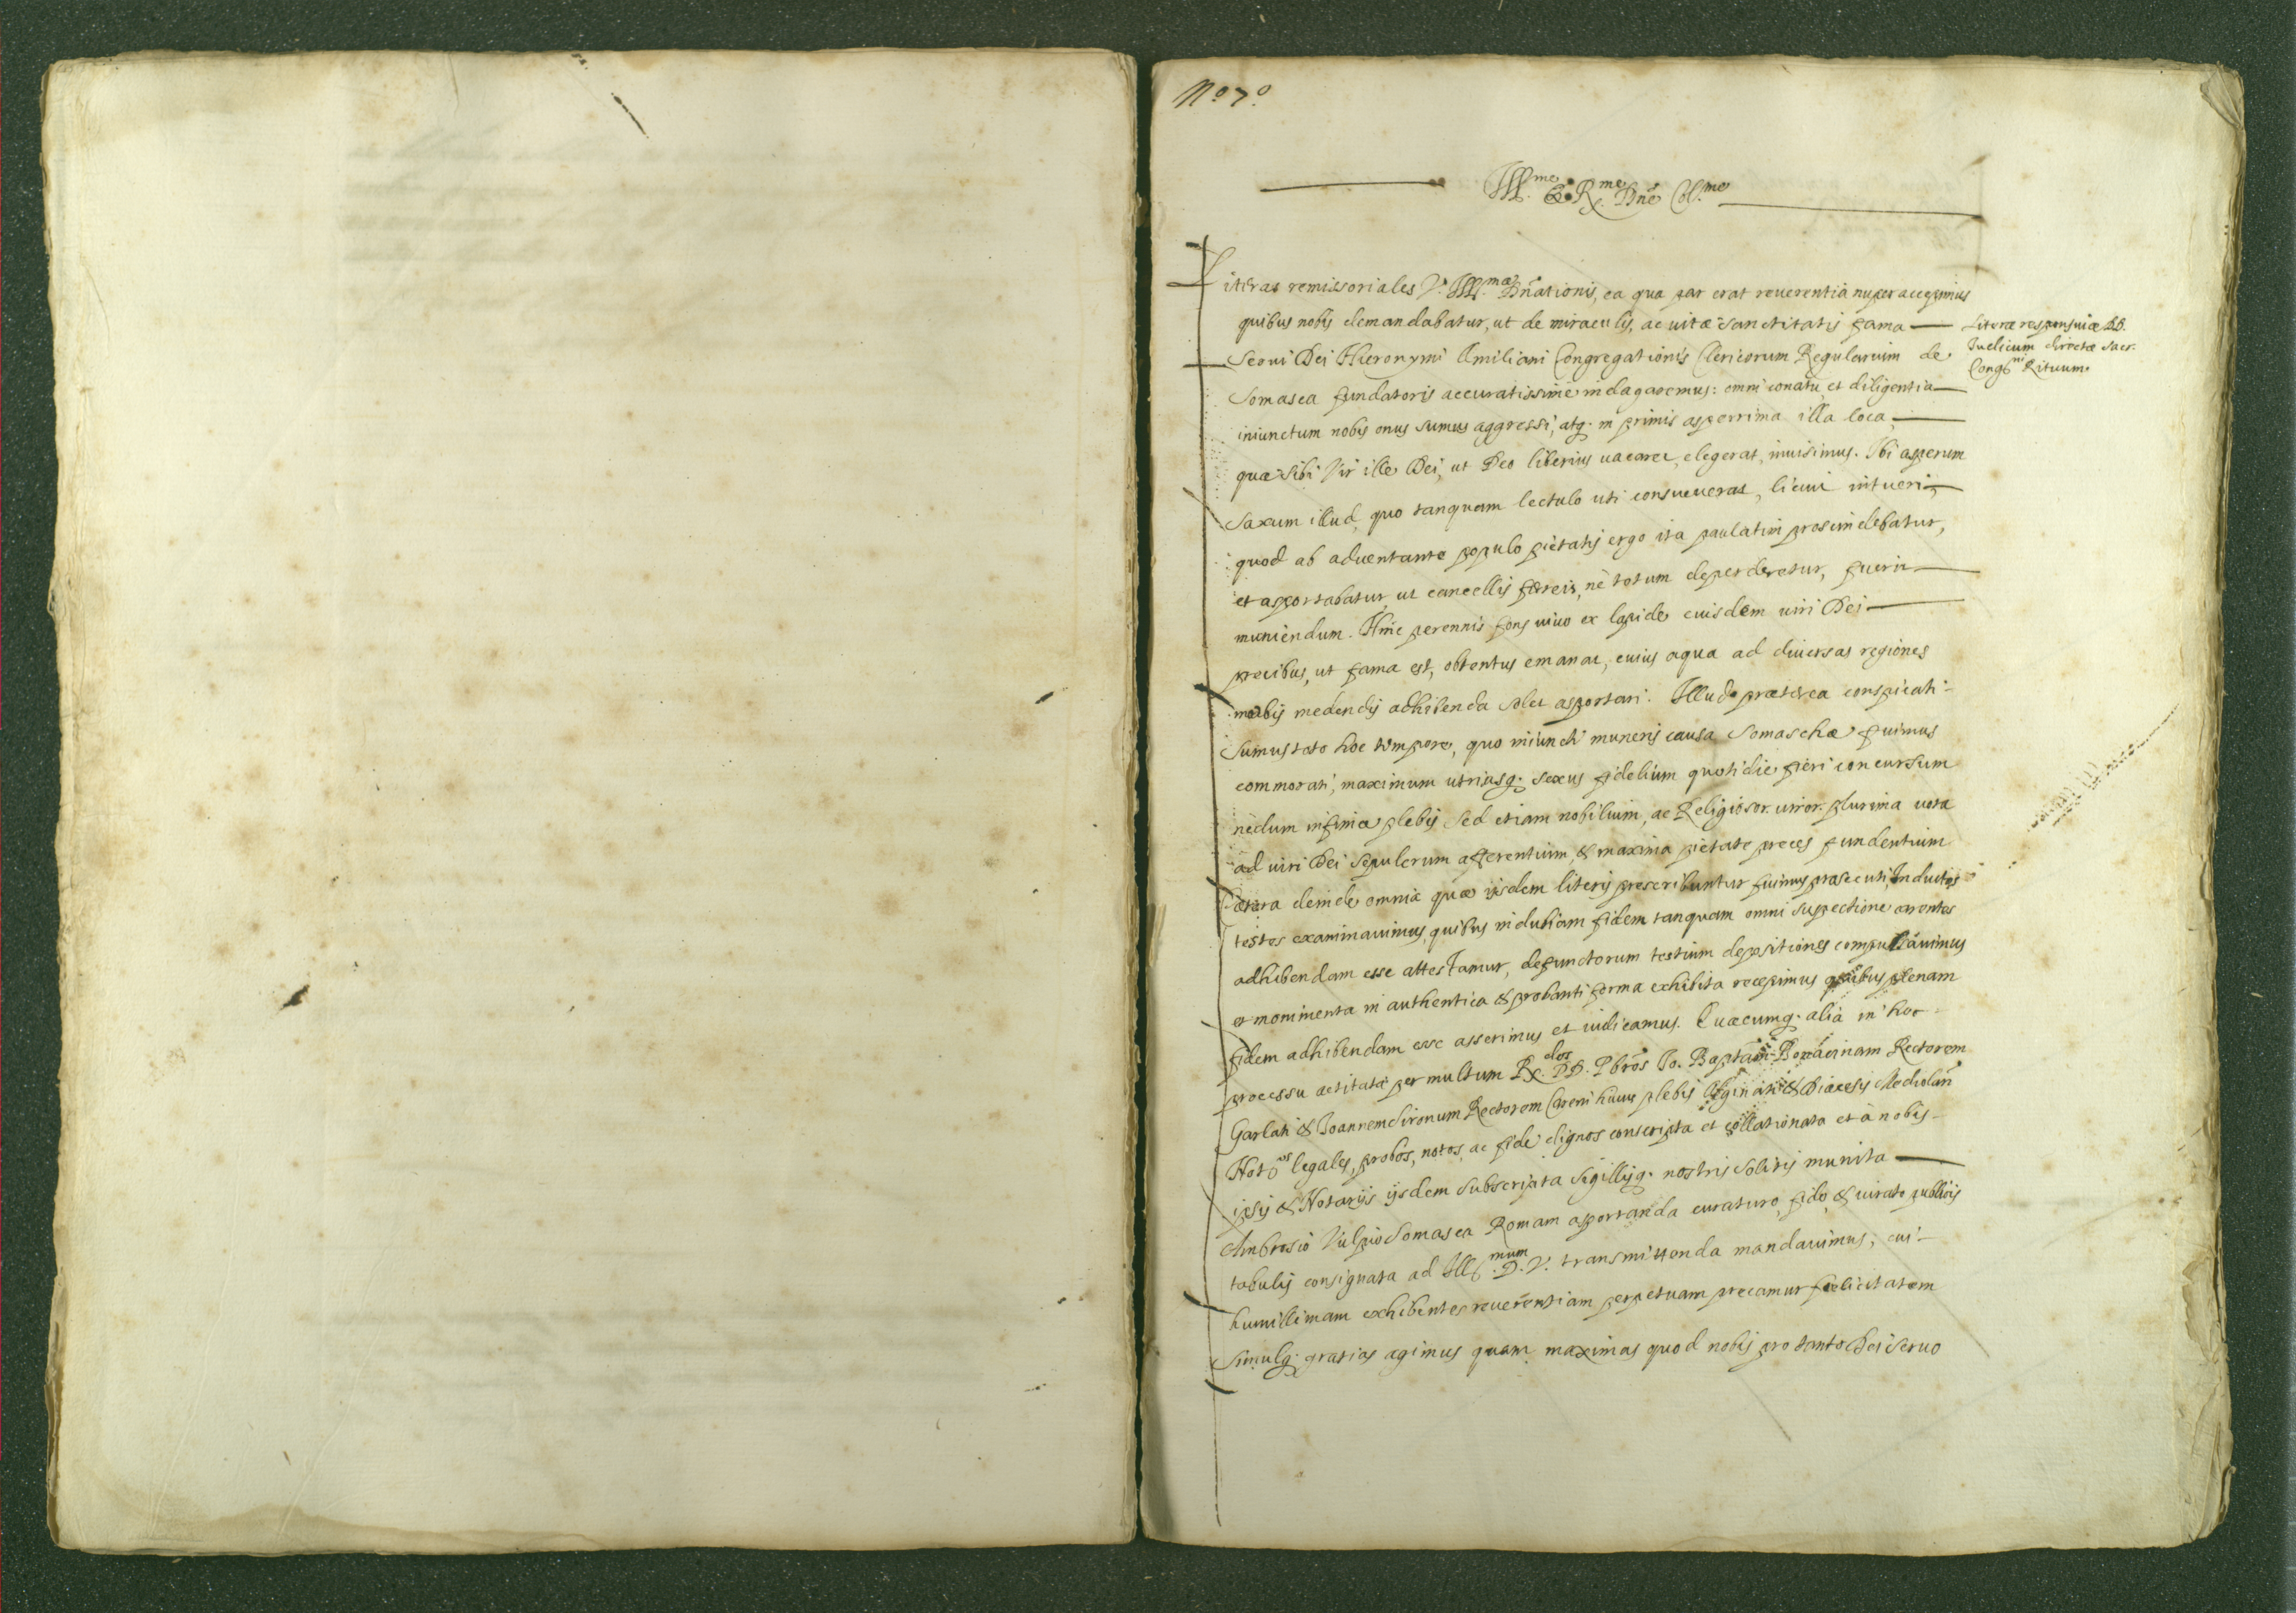 Nº 7º
Ill.me & R.me Dñe Col.me
Literas remissoriales V. Ill.mæ Dñationis, ea qua par erat reuerentia nuper accepimus
quibus nobis demandabatur, ut de miraculis, ac uitæ sanctitatis fama
Serui Dei Hieronymi Æmiliani Congregationis Clericorum Regularium de
Somasca fundatoris accuratissime indagaremus: omni conatu, et diligentia
iniunctum nobis onus sumus aggressi, atq. in primis asperrima illa loca,
quæ sibi Vir ille Dei, ut Deo liberius uacaret, elegerat, inuisimus. Ibi asperum
Saxum illud, quo tanquam lectulo uti consueuerat, licuit intueri,
quod ab aduentante populo pietatis ergo ita paulatim proscindebatur,
et asportabatur, ut cancellis ferreis, ne totum deperderetur, fuerit
muniendum. Hinc perennis fons uiuo ex lapide euisdem uiri Dei
precibus, ut fama est, obtentus emanat, cuius aqua ad diuersas regiones
morbis medendis adhibenda solet asportari. Illud præterea conspicati
sumus toto hoc tempore, quo iniuncti muneris causa Somaschæ fuimus
commorati, maximum utriusq. sexus fidelium quotidie fieri concursum
nedum infimæ plebis sed etiam nobilium, ac Religiosor. uiror. plurima uota
ad uiri Dei sepulcrum afferentium, & maxima pietate preces fundentium
Cætera deinde omnia quæ ijsdem literis prescribuntur fuimus prosecuti, Inductos
testes examinauimus, quibus indubiam fidem tanquam omni suspectione carentes
adhibendam esse attestamur, defunctorum testium depositiones compulsauimus
et monimenta in authentica & probanti forma exhibita recepimus quibus plenam
fidem adhibendam esse asserimus et iudicamus. Quæcumq. alia in hoc
processu actitata per multum R.dos DD. Pbros Io. Baptam Bonacinam Rectorem
Garlati & Joannem Sironum Rectorem Careni huius plebis Olginati & Diæcesis Mediolañ
Notos legales, probos, notos, ac fide dignos conscripta et collationata et à nobis
ipsis & Notarijs ijsdem subscripta sigillisq. nostris solitis munita
Ambrosio Vulpio Somasca Romam asportanda curaturo, fido, & iurato publicis
tabulis consignata ad Ill.mum D. V. transmittenda mandauimus, cui
humillimam exhibentes reuerentiam perpetuam precamur felicitatem
Simulq. gratias agimus quam maximas quod nobis pro tanto Dei seruo
Literæ responsiuæ DD.
Iudicum directæ Sacr.
Cong.ni Rituum.